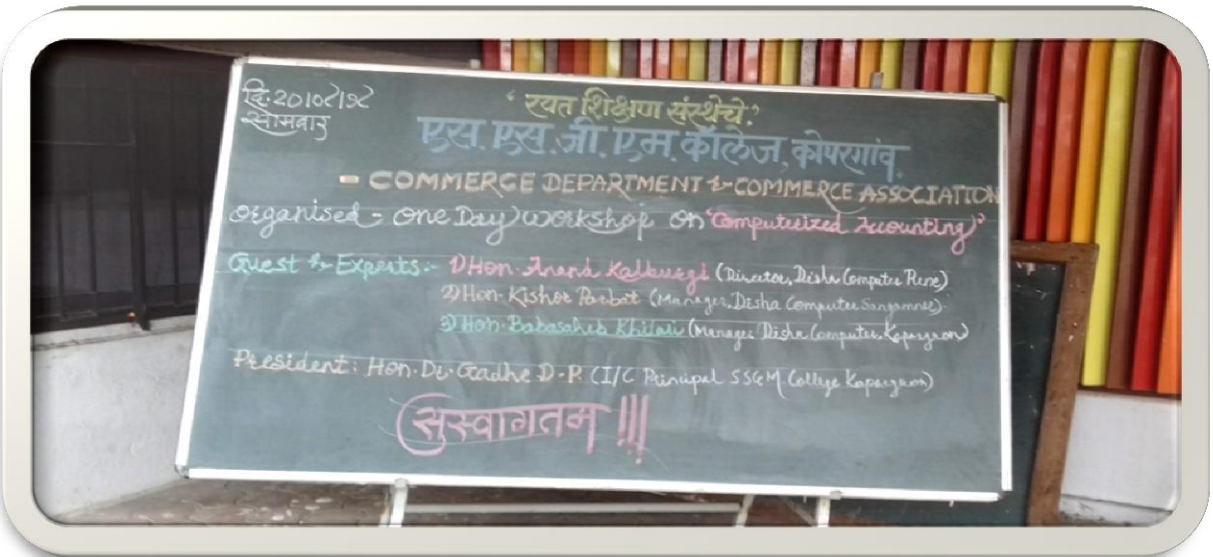 दि. 20।08।18
सोमवार
'रयत शिक्षण संस्थेचे'
एस. एस. जी. एम. कॉलेज, कोपरगांव.
- COMMERCE DEPARTMENT & COMMERCE ASSOCIATION
Organised - One Day workshop on "Computerized Accounting"
Guest & Experts:- 1) Hon. Anand Kalburgi (Director, Disha Computer Pune)
2) Hon. Kishor Parbat (Manager, Disha Computer Sangamner)
3) Hon. Babasaheb Khilari (Manager Disha Computer, Kopargaon)
President: Hon. Dr. Gadhe D.P. (I/C Principal SSGM College Kopargaon)
सुस्वागतम !!!